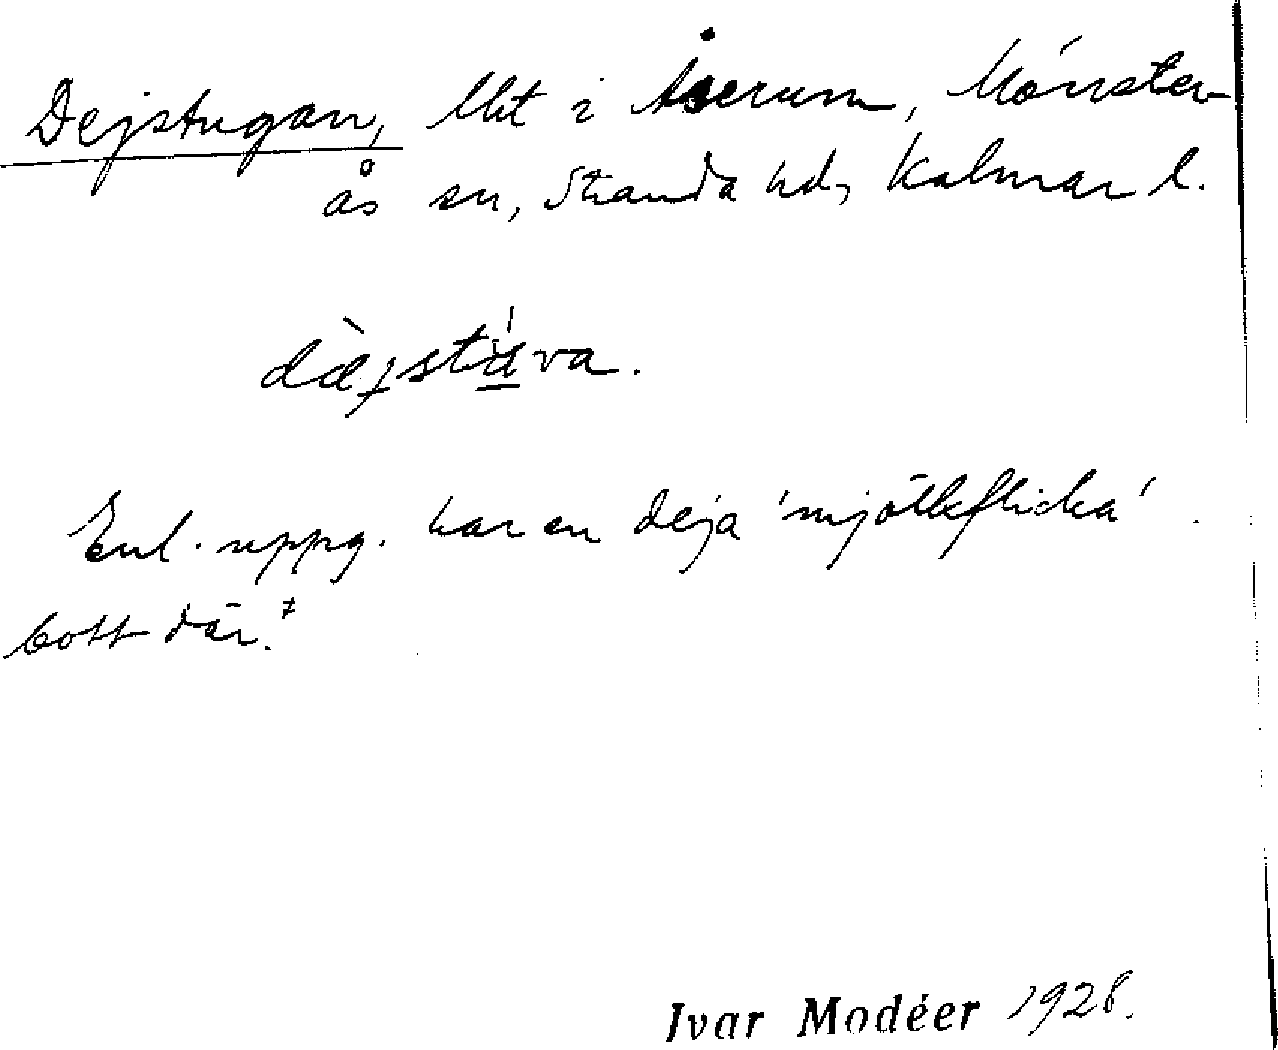 Dejstugan, lht i Åserum, Mönster-
ås sn, Stranda hd, Kalmar l.
Enl. uppg. har en deja 'mjölkflicka'.
bott där.
Ivar Modéer 1928.